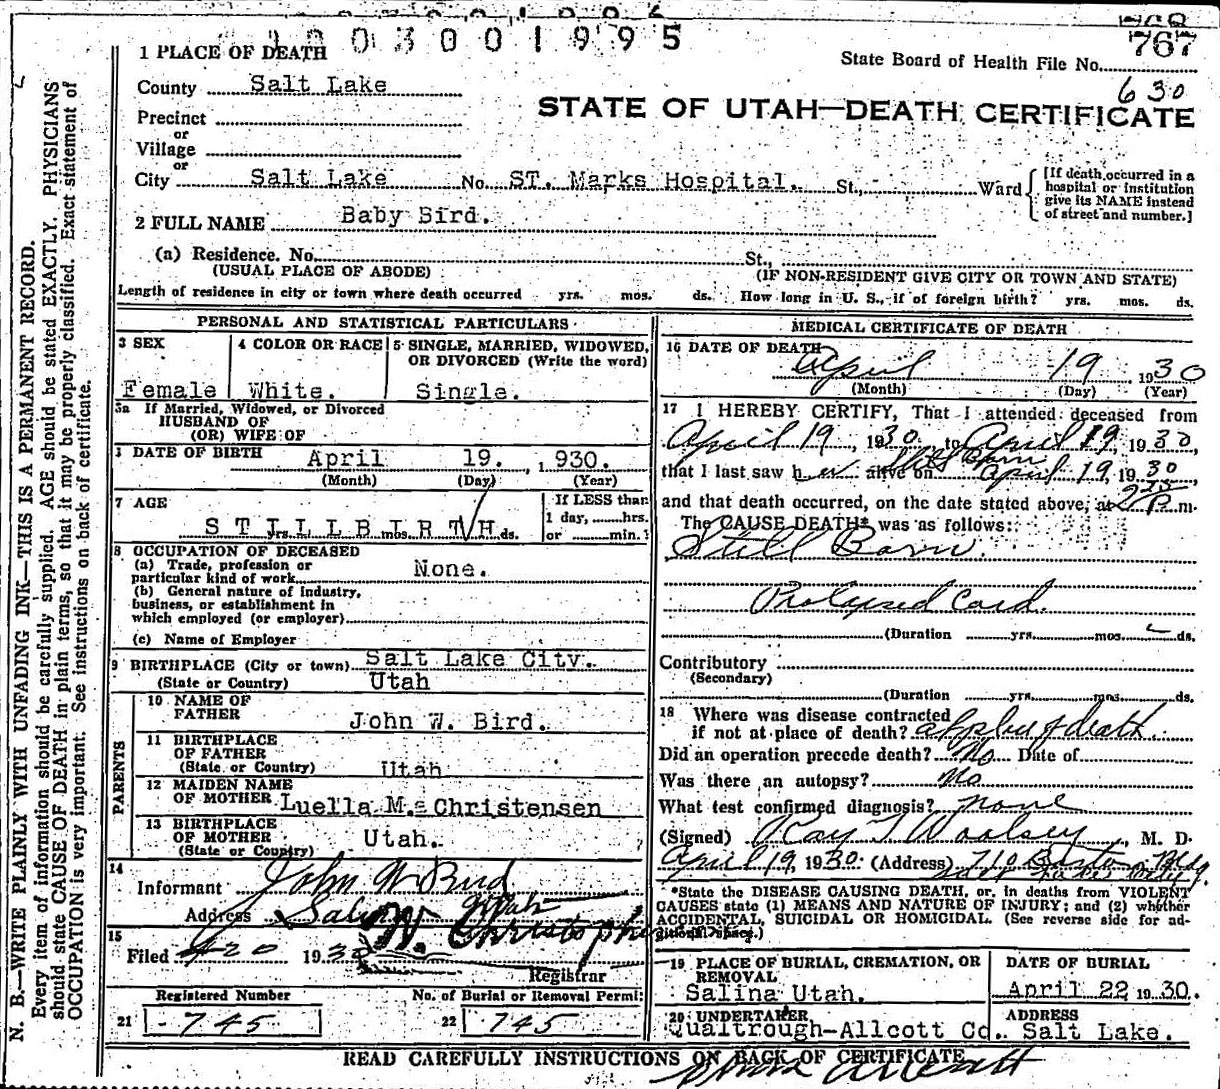 1003001995
767
State Board of Health File No.
630
1 PLACE OF DEATH
County Salt Lake
STATE OF UTAH—DEATH CERTIFICATE
Precinct
or
Village
or
City Salt Lake No. ST. Marks Hospital. St., Ward
[If death occurred in a hospital or institution give its NAME instead of street and number.]
2 FULL NAME Baby Bird.
(a) Residence. No. St.,
(USUAL PLACE OF ABODE) (IF NON-RESIDENT GIVE CITY OR TOWN AND STATE)
Length of residence in city or town where death occurred yrs. mos. ds. How long in U. S., if of foreign birth? yrs. mos. ds.
PERSONAL AND STATISTICAL PARTICULARS
3 SEX 4 COLOR OR RACE 5 SINGLE, MARRIED, WIDOWED,
OR DIVORCED (Write the word)
Female White. Single.
5a If Married, Widowed, or Divorced
HUSBAND OF
(OR) WIFE OF
DATE OF BIRTH April 19. 1930.
(Month) (Day) (Year)
7 AGE If LESS than
1 day, hrs.
STILLBIRTH yrs. mos. ds. or min.
8 OCCUPATION OF DECEASED
(a) Trade, profession or
particular kind of work None.
(b) General nature of industry,
business, or establishment in
which employed (or employer)
(c) Name of Employer
9 BIRTHPLACE (City or town) Salt Lake City.
(State or Country) Utah
PARENTS
10 NAME OF
FATHER John W. Bird.
11 BIRTHPLACE
OF FATHER
(State or Country) Utah
12 MAIDEN NAME
OF MOTHER Luella M. Christensen
13 BIRTHPLACE
OF MOTHER Utah.
(State or Country)
14
Informant John W Bird
Address Salina Utah
15
Filed 4-20 1930
Registrar
Registered Number No. of Burial or Removal Permit
21 745 22 745
MEDICAL CERTIFICATE OF DEATH
16 DATE OF DEATH April 19 1930
(Month) (Day) (Year)
17 I HEREBY CERTIFY, That I attended deceased from
April 19, 1930, to April 19, 1930,
that I last saw her alive on April 19, 1930
and that death occurred, on the date stated above, at P. m.
The CAUSE DEATH* was as follows:
Still Born.
Prolapsed Cord.
(Duration yrs. mos. ds.
Contributory
(Secondary)
(Duration yrs. mos. ds.
18 Where was disease contracted
if not at place of death? at place of death
Did an operation precede death? No Date of
Was there an autopsy? No
What test confirmed diagnosis? none
(Signed) Ray T Woolsey, M. D.
April 19, 1930. (Address) 710 Boston Bldg.
*State the DISEASE CAUSING DEATH, or, in deaths from VIOLENT
CAUSES state (1) MEANS AND NATURE OF INJURY; and (2) whether
ACCIDENTAL, SUICIDAL OR HOMICIDAL. (See reverse side for ad-
ditional space.)
19 PLACE OF BURIAL, CREMATION, OR DATE OF BURIAL
REMOVAL
Salina Utah. April 22 1930.
20 UNDERTAKER ADDRESS
Qualtrough-Allcott Co. Salt Lake.
READ CAREFULLY INSTRUCTIONS ON BACK OF CERTIFICATE
N. B.—WRITE PLAINLY WITH UNFADING INK—THIS IS A PERMANENT RECORD.
Every item of information should be carefully supplied. AGE should be stated EXACTLY. PHYSICIANS
should state CAUSE OF DEATH in plain terms, so that it may be properly classified. Exact statement of
OCCUPATION is very important. See instructions on back of certificate.